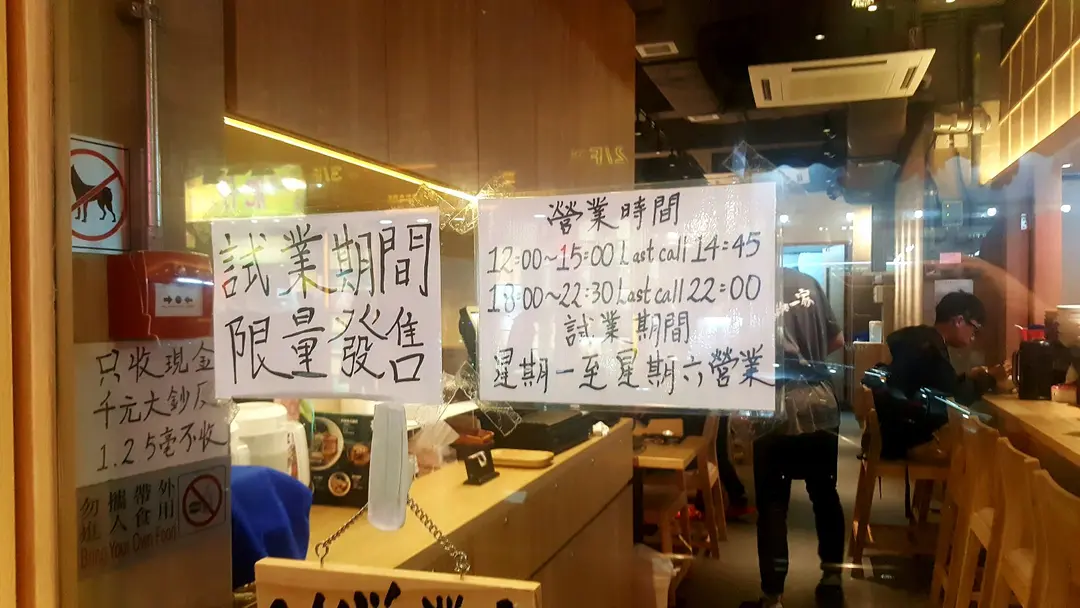 試業期間
限量發售
營業時間
12:00~15:00 Last call 14:45
18:00~22:30 Last call 22:00
試業期間
星期一至星期六營業
只收現金
千元大鈔及
1.2.5毫不收
勿攜帶外
進入食用
Bring Your Own Food
3/F
2/F
家